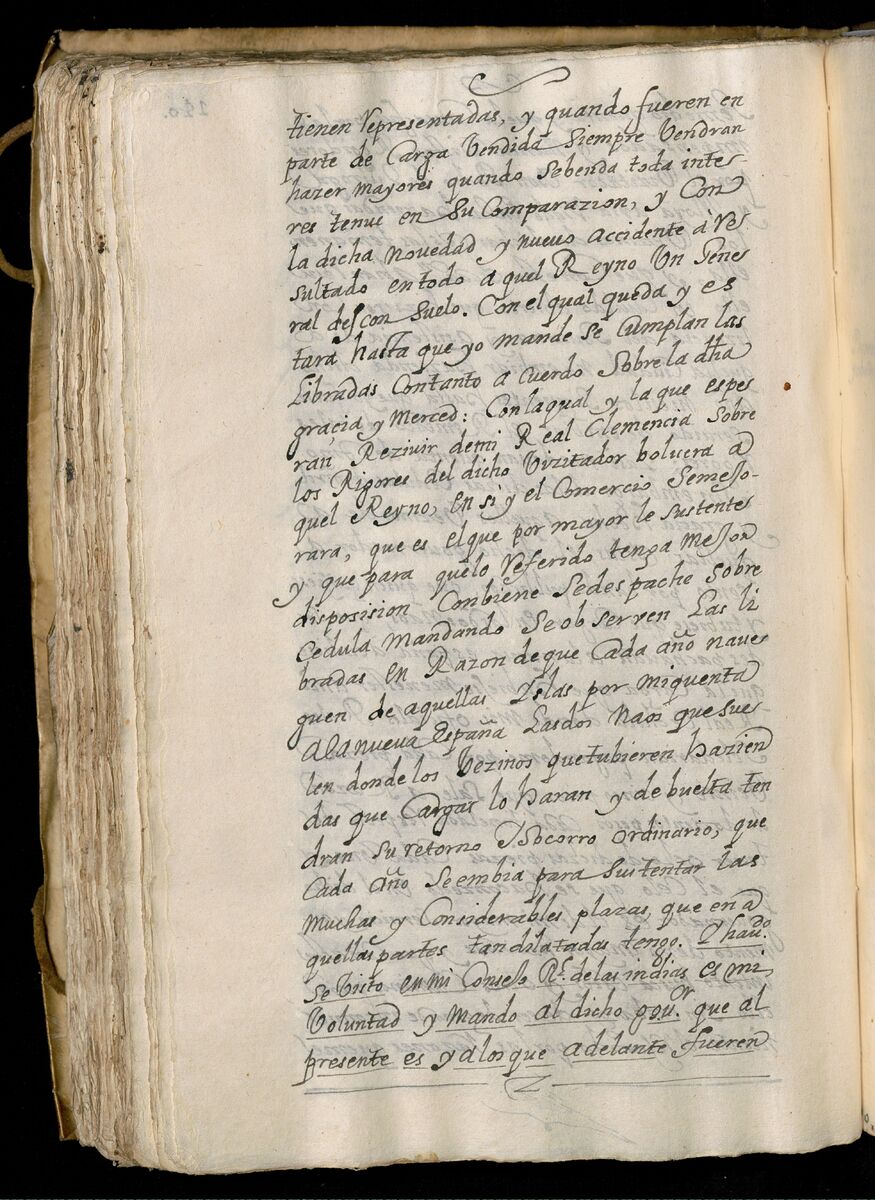 tienen representadas, y quando fueren en
parte de Carga Vendida Siempre Vendran
hazer mayores quando sebenda toda inte-
res tenue en Su Comparazion, y Con
la dicha novedad y nuevo accidente à re
sultado entodo aquel Reyno Un gene
ral desconsuelo. Con el qual queda y es
tara hasta que yo mande se Cumplan las
Libradas Contanto acuerdo Sobre la dha
gracia y Merced: Con la qual y la que espe
ran Rezivir demi Real Clemencia Sobre
los Rigores del dicho Vizitador bolvera a
quel Reyno, en si y el Comercio Semejo-
rara, que es el que por mayor le sustente
y que para quelo referido tenga Mejor
disposision Conbiene Sedespache Sobre
Cedula Mandando Se observen Las li
bradas en Razon deque Cada año nave
guen de aquellas Yslas por miquenta
alanueva España Lasdos Naos que sue
len donde los Vezinos quetubieren hazien
das que Cargar lo haran y de buelta ten
dran su retorno Ysocorro ordinario, que
Cada año Seembia para sustentar las
muchas y Considerables plazas, que en a
quellas partes tandilatadas tengo. Y havdo.
se Visto en mi Consejo Rl. de las indias es mi
Voluntad y Mando al dicho govor. que al
presente es y alos que adelante fueren